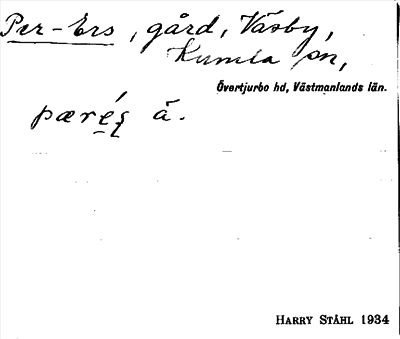 Per-Ers, gård, Väsby,
Kumla sn,
Övertjurbo hd, Västmanlands län.
pærés̨ ä.
HARRY STÅHL 1934